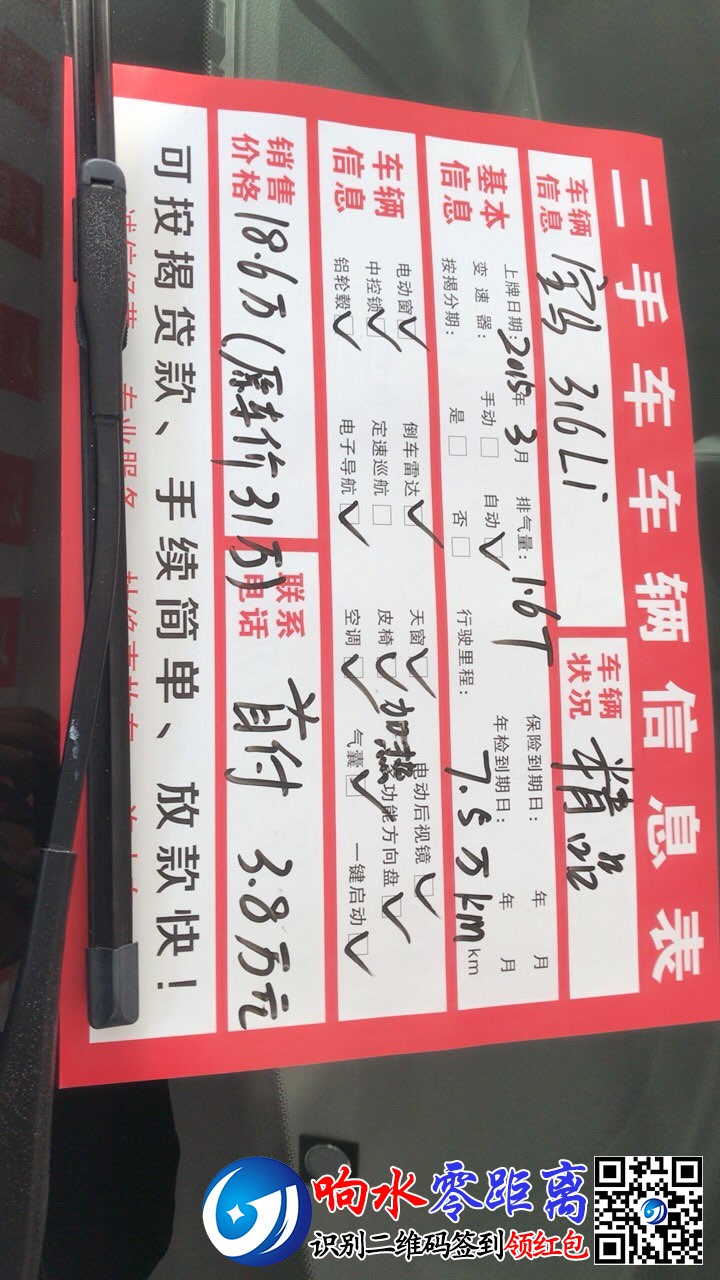 二手车车辆信息表
车辆信息 宝马 316Li 车辆状况 精品
基本信息
上牌日期: 2015年 3月 排气量: 1.6T 保险到期日: 年 月
变速器: 手动 □ 自动 ☑ 年检到期日: 年 月
按揭分期: 是 □ 否 □ 行驶里程: 7.5万km km
车辆信息
电动窗 ☑ 倒车雷达 ☑ 天窗 ☑ 电动后视镜 ☑
中控锁 ☑ 定速巡航 □ 皮椅 ☑ 加热 功能方向盘 ☑
铝轮毂 ☑ 电子导航 ☑ 空调 ☑ 气囊 ☑ 一键启动 ☑
销售价格 18.6万(原车价31万) 联系电话 首付 3.8万元
可按揭贷款、手续简单、放款快!
响水零距离
识别二维码签到领红包